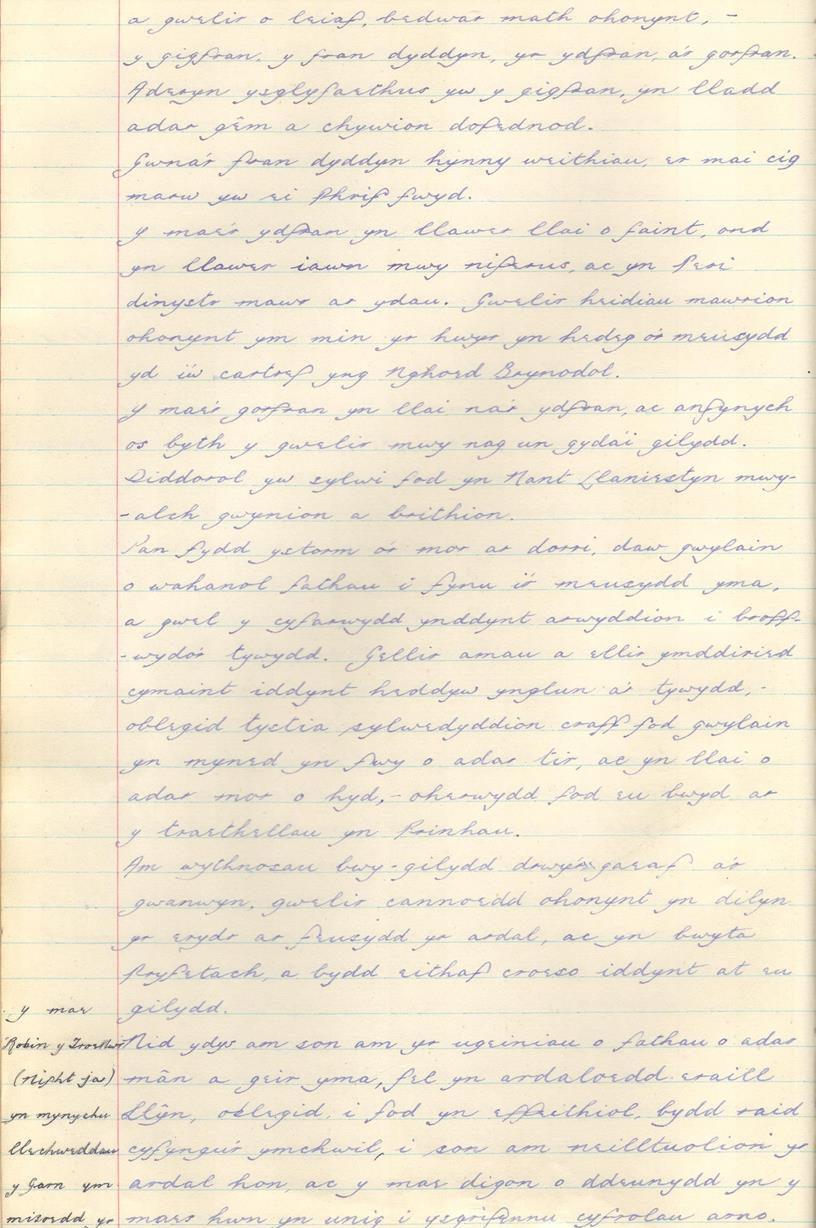 a gwelir o leiaf, bedwar math ohonynt, -
y gigfran, y fran dyddyn, yr ydfran, a'r gorfran.
Aderyn ysglyfaethus yw y gigfran, yn lladd
adar gêm a chywion dofednod.
Gwna'r fran dyddyn hynny weithiau, er mai cig
marw yw ei phrif fwyd.
Y mae'r ydfran yn llawer llai o faint, ond
yn llawer iawn mwy niferus, ac yn peri
dinystr mawr ar ydau. Gwelir heidiau mawrion
ohonynt ym min yr hwyr yn hedeg o'r meusydd
yd i'w cartref yng Nghoed Brynodol.
Y mae'r gorfran yn llai na'r ydfran, ac anfynych
os byth y gwelir mwy nag un gyda'i gilydd.
Diddorol yw sylwi fod yn Nant Llaniestyn mwy-
-alch gwynion a brithion.
Pan fydd ystorm o'r mor ar dorri, daw gwylain
o wahanol fathau i fynu i'r meusydd yma,
a gwel y cyfarwydd ynddynt arwyddion i broff-
-wydo'r tywydd. Gellir amau a ellir ymddiried
cymaint iddynt heddyw ynglun a'r tywydd, -
oblegid tystia sylwedyddion craff fod gwylain
yn myned yn fwy o adar tir, ac yn llai o
adar mor o hyd, - oherwydd fod eu bwyd ar
y traethellau yn prinhau.
Am wythnosau bwy-gilydd drwy'r gaeaf a'r
gwanwyn, gwelir cannoedd ohonynt yn dilyn
yr erydr ar feusydd yr ardal, ac yn bwyta
pryfetach, a bydd eithaf croeso iddynt at eu
gilydd.
Nid ydys am son am yr ugeiniau o fathau o adar
mân a geir yma, fel yn ardaloedd eraill
Llŷn, oblegid, i fod yn effeithiol, bydd raid
cyfyngu'r ymchwil, i son am neilltuolion yr
ardal hon, ac y mae digon o ddeunydd yn y
maes hwn yn unig i ysgrifennu cyfrolau arno.
y mae
Robin y Troellwr
(Night jar)
yn mynychu
llechweddau
y Garn ym
misoedd yr